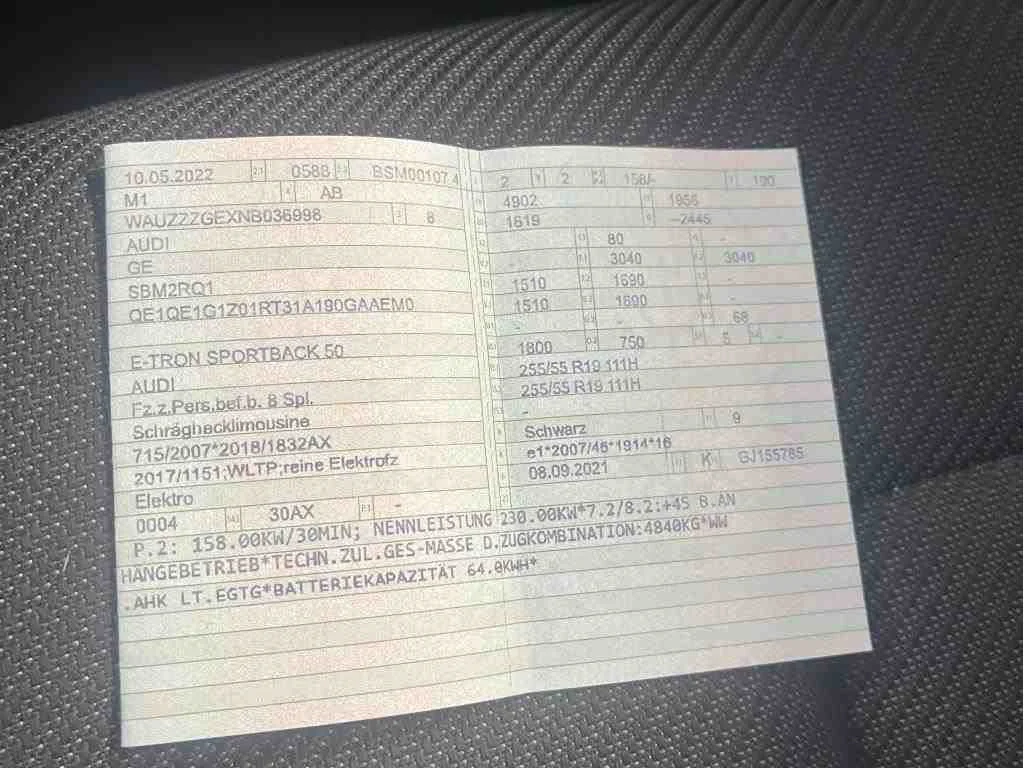 10.05.2022 2.1 0588 2.2 BSM00107 4
M1 4 AB
WAUZZZGEXNB036998 3 8
AUDI
GE
SBM2RQ1
QE1QE1G1Z01RT31A190GAAEM0
E-TRON SPORTBACK 50
AUDI
Fz.z.Pers.bef.b. 8 Spl.
Schräghecklimousine
715/2007*2018/1832AX
2017/1151;WLTP;reine Elektrofz
Elektro
0004 14.1 30AX P.1 -
2 9 2 P.2 158/- T 190
4902 1956
1619 -2445
80 -
- 3040 3040
1510 1690 -
1510 1690 -
- - 68
1800 750 5 -
255/55 R19 111H
255/55 R19 111H
-
Schwarz 11 9
e1*2007/46*1914*16
08.09.2021 17 K GJ155785
P.2: 158.00KW/30MIN; NENNLEISTUNG 230.00KW*7.2/8.2:+45 B.AN
HÄNGEBETRIEB*TECHN.ZUL.GES-MASSE D.ZUGKOMBINATION:4840KG*WW
.AHK LT.EGTG*BATTERIEKAPAZITÄT 64.0KWH*